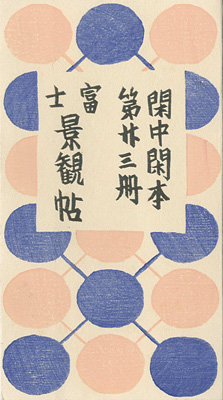 閑中閑本
第廾三册
富士
景観帖